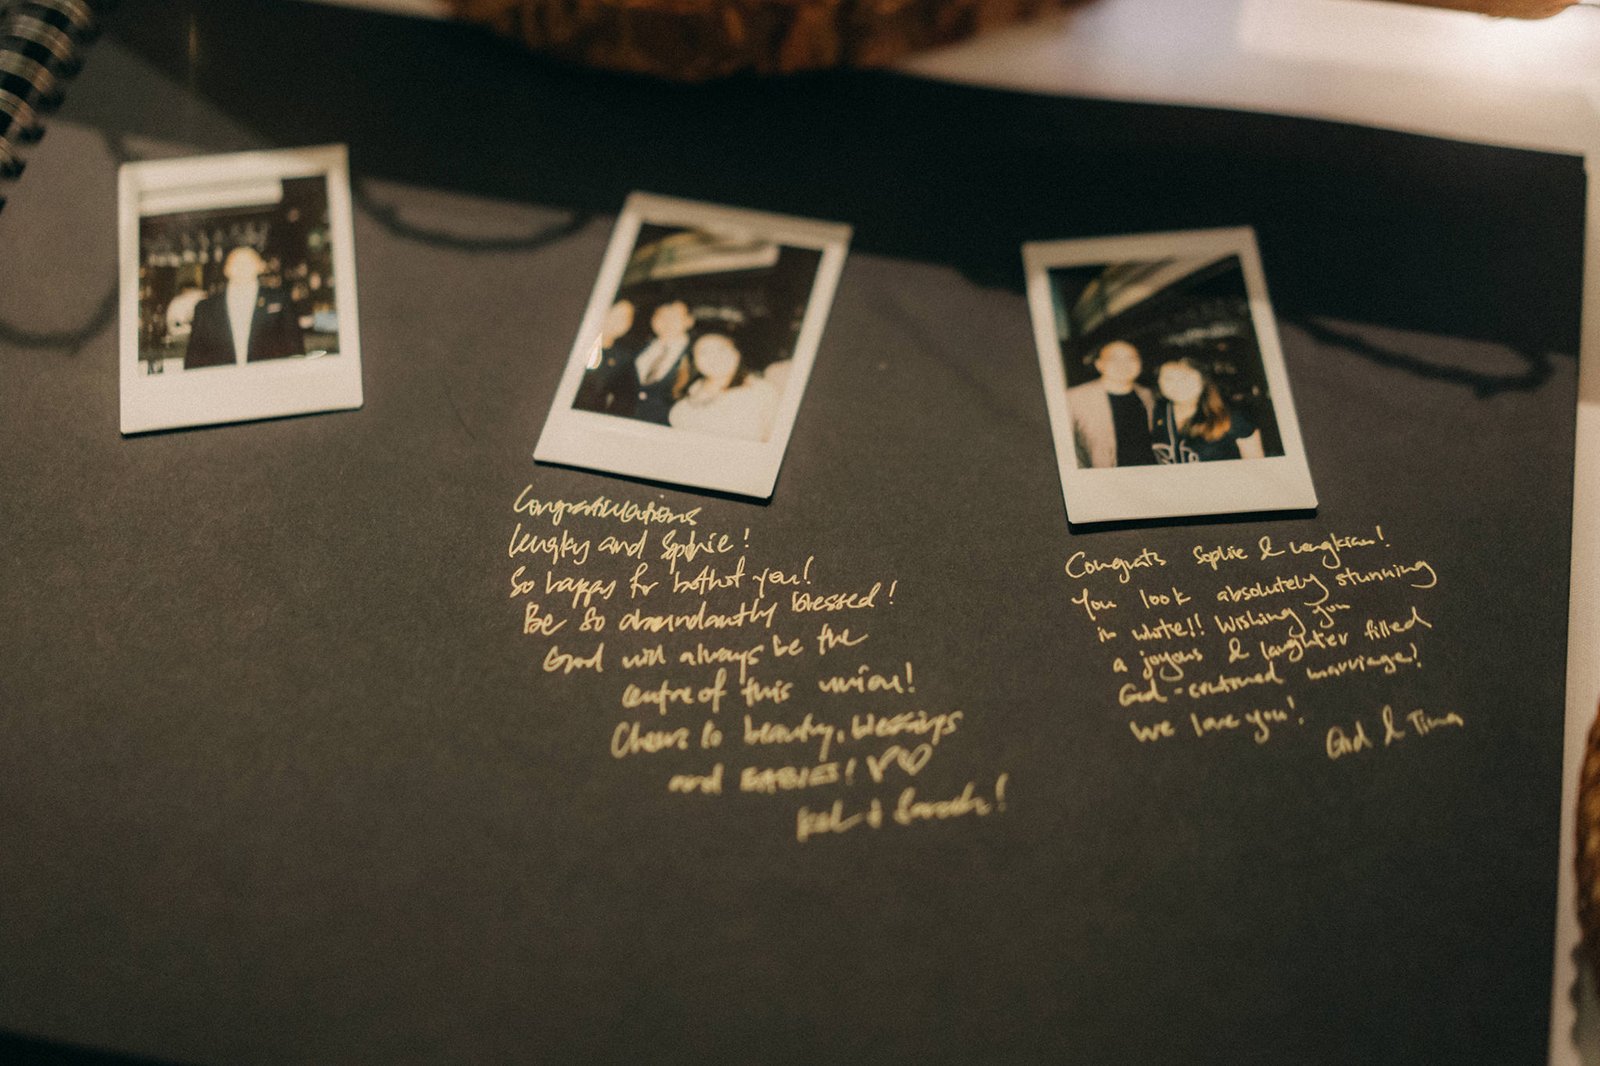 Congratulations
Lengky and Sophie!
So happy for both of you!
Be so abundantly blessed!
God will always be the
centre of this union!
Cheers to beauty, blessings
and BABIES!
& Sarah!
Congrats Sophie & Lengkian!
You look absolutely stunning
in white!! Wishing you
a joyous & laughter filled
God-centred marriage!
We love you!
& Tima